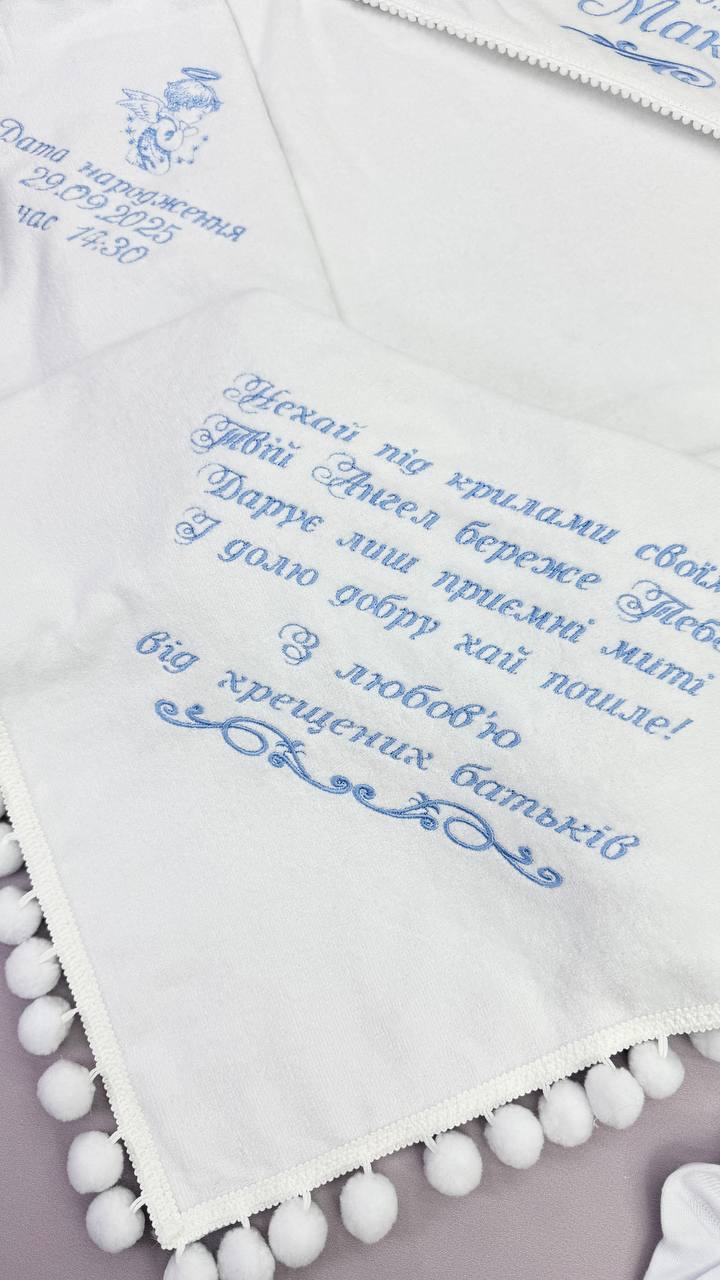 Дата народження
29.09.2025
час 14:30
Нехай під крилами своїм
Твій Ангел береже Тебе
Дарує лиш приємні миті
І долю добру хай пошле!
З любов'ю
від хрещених батьків